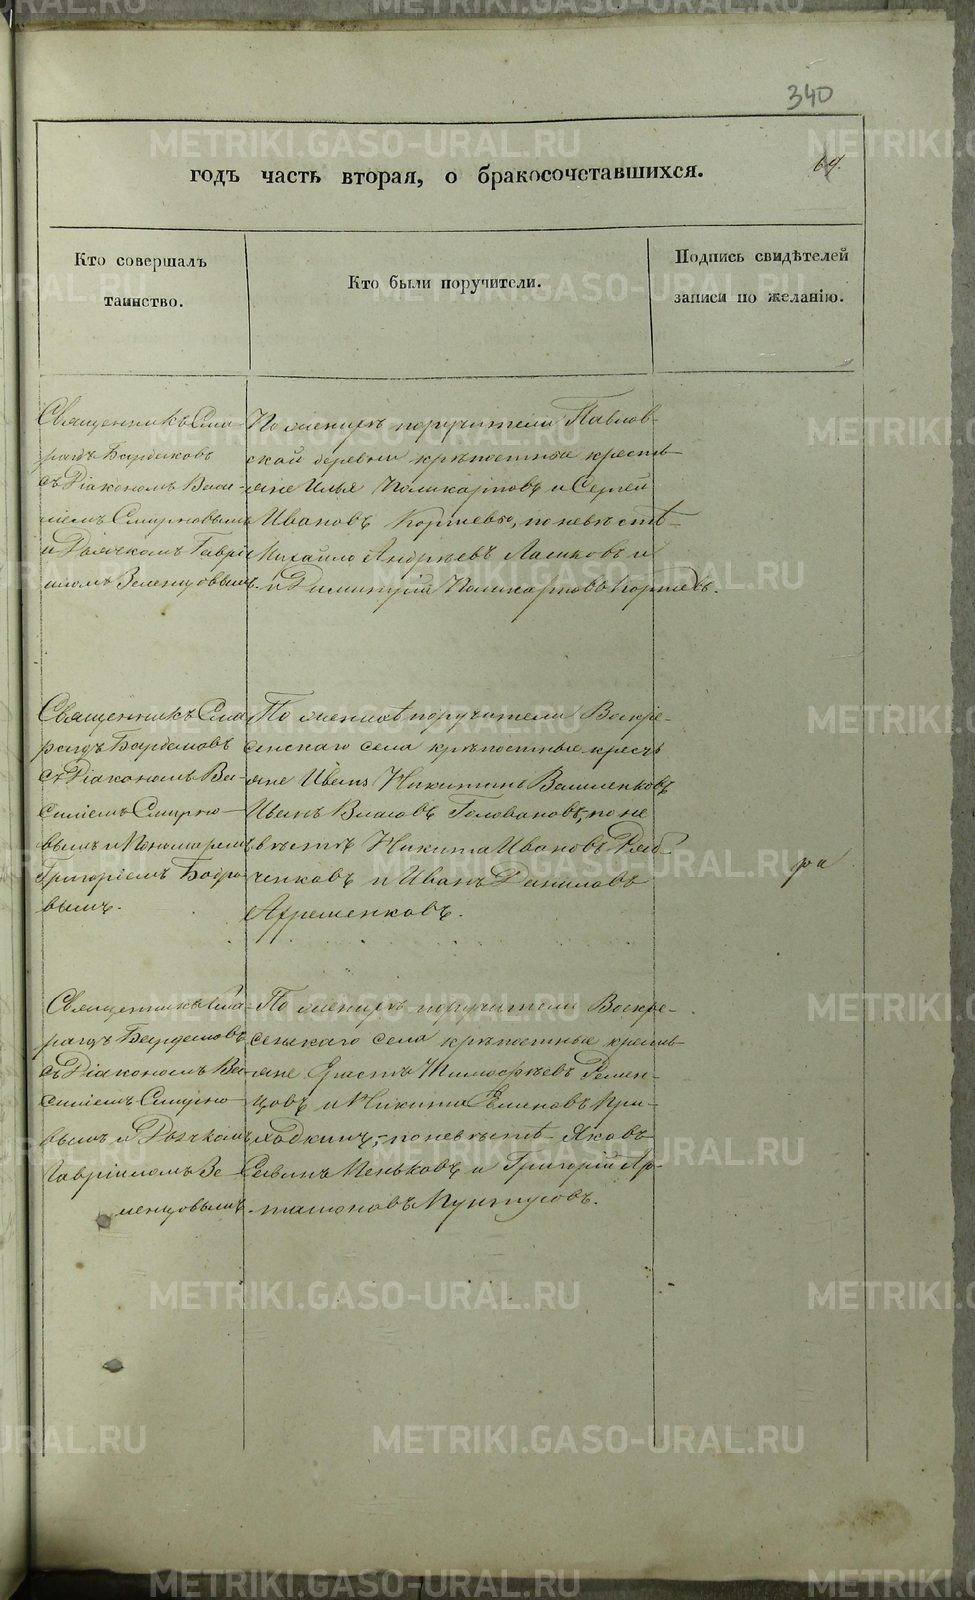 340
годъ часть вторая, о бракосочетавшихся.
64.
Кто совершалъ
таинство.
Кто были поручители.
Подпись свидѣтелей
записи по желанію.
Священникъ Сма-
рагдъ
съ Діакономъ Васи-
ліемъ Смирновымъ
и Дьячкомъ Гаврі-
иломъ Зеленцовымъ.
По женихѣ поручители Павлов-
ской деревни крѣпостные кресть-
яне Илья Поликарповъ и Сергей
Ивановъ по невѣстѣ
Михайло Андреевъ и
и Димитрій Поликарповъ
Священникъ Сма-
рагдъ
съ Діакономъ Ва-
силіемъ Смирно-
вымъ и Пономаремъ
Григоріемъ Бобро-
вымъ.
По женихѣ поручители Воскре-
сенскаго села крѣпостные кресть
яне Иванъ Никитинъ
Иванъ Власовъ Головановъ, по не
вѣстѣ Никита Ивановъ
и Иванъ Даниловъ
Ахременковъ.
ра
Священникъ Сма-
рагдъ
съ Діакономъ Ва-
силіемъ Смирно-
вымъ и Дьячкомъ
Гавріиломъ Зе-
ленцовымъ
По женихѣ поручители Воскре-
сенскаго села крѣпостные кресть-
яне Ерастъ Тимофѣевъ
и Никита
по невѣстѣ Яковъ
Пеньковъ и Григорій Ар-
тамоновъ
METRIKI.GASO-URAL.RU